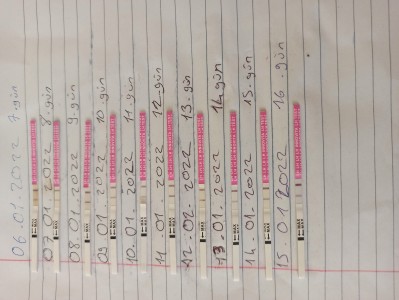 06.01.2022 7.gün
07.01.2022 8.gün
08.01.2022 9.gün
09.01.2022 10.gün
10.01.2022 11.gün
11.01.2022 12.gün
12.02.2022 13.gün
13.01.2022 14.gün
14.01.2022 15.gün
15.01.2022 16.gün
MAX
MAX
MAX
MAX
MAX
MAX
MAX
MAX
MAX
MAX